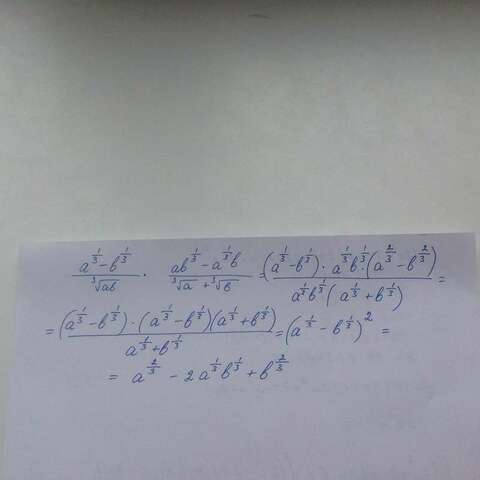 \frac{a^{\frac{1}{3}} - b^{\frac{1}{3}}}{\sqrt[3]{ab}} \cdot \frac{ab^{\frac{1}{3}} - a^{\frac{1}{3}}b}{\sqrt[3]{a} + \sqrt[3]{b}} = \frac{(a^{\frac{1}{3}} - b^{\frac{1}{3}}) \cdot a^{\frac{1}{3}}b^{\frac{1}{3}} \cdot (a^{\frac{2}{3}} - b^{\frac{2}{3}})}{a^{\frac{1}{3}}b^{\frac{1}{3}}(a^{\frac{1}{3}} + b^{\frac{1}{3}})} =
= \frac{(a^{\frac{1}{3}} - b^{\frac{1}{3}}) \cdot (a^{\frac{1}{3}} - b^{\frac{1}{3}})(a^{\frac{1}{3}} + b^{\frac{1}{3}})}{a^{\frac{1}{3}} + b^{\frac{1}{3}}} = (a^{\frac{1}{3}} - b^{\frac{1}{3}})^2 =
= a^{\frac{2}{3}} - 2a^{\frac{1}{3}}b^{\frac{1}{3}} + b^{\frac{2}{3}}